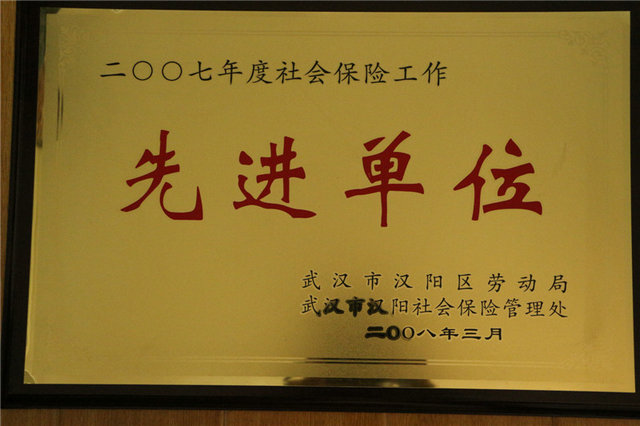 二〇〇七年度社会保险工作
先进单位
武汉市汉阳区劳动局
武汉市汉阳社会保险管理处
二〇〇八年三月